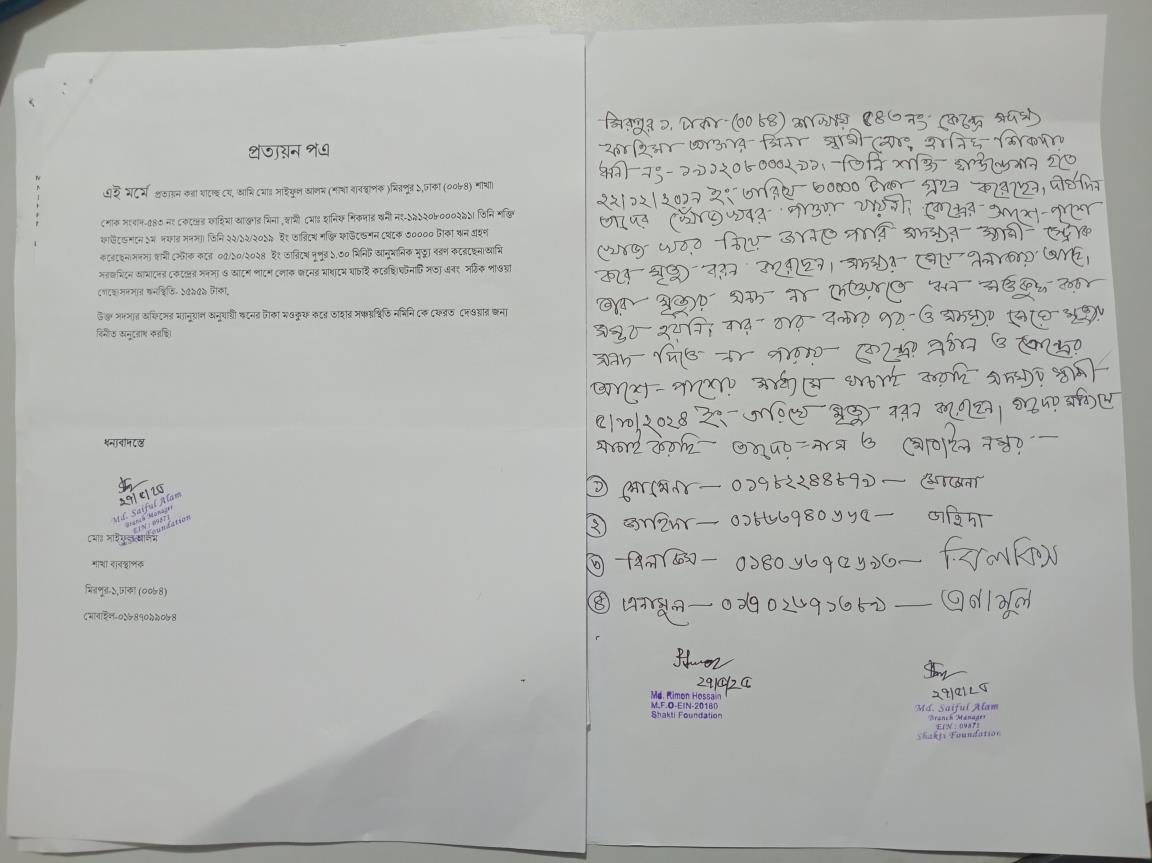 প্রত্যয়ন পএ
এই মর্মে প্রত্যয়ন করা যাচ্ছে যে, আমি মোঃ সাইফুল আলম (শাখা ব্যবস্থাপক )মিরপুর ১,ঢাকা (০০৮৪) শাখা।
শোক সংবাদ-৫৪৩ নং কেন্দ্রের ফাহিমা আক্তার মিনা ,স্বামী মোঃ হানিফ শিকদার ঋনী নং-১৯১২০৮০০০২৯১। তিনি শক্তি
ফাউন্ডেশনে ১ম দফার সদস্য। তিনি ২২/১২/২০১৯ ইং তারিখে শক্তি ফাউন্ডেশন থেকে ৩০০০০ টাকা ঋন গ্রহণ
করেছেন।সদস্য স্বামী স্টোক করে ০৫/১০/২০২৪ ইং তারিখে দুপুর ১.৩০ মিনিট আনুমানিক মৃত্যু বরণ করেছেন।আমি
সরজমিনে আমাদের কেন্দ্রের সদস্য ও আশে পাশে লোক জনের মাধ্যমে যাচাই করেছি।ঘটনাটি সত্য এবং সঠিক পাওয়া
গেছে।সদস্যর ঋনস্থিতি- ১৫৯৫৯ টাকা,
উক্ত সদস্যর অফিসের ম্যানুয়াল অনুযায়ী ঋনের টাকা মওকুফ করে তাহার সঞ্চয়স্থিতি নমিনি কে ফেরত দেওয়ার জন্য
বিনীত অনুরোধ করছি।
ধন্যবাদন্তে
২৭/৫/২৫
Md. Saiful Alam
Branch Manager
EIN : 09871
Shakti Foundation
মোঃ সাইফুল আলম
শাখা ব্যবস্থাপক
মিরপুর-১,ঢাকা (০০৮৪)
মোবাইল-০১৮৪৭০৯৯০৮৪
মিরপুর ১, ঢাকা-(০০৮৪) শাখার ৫৪৩ নং কেন্দ্রে সদস্য
ফাহিমা আক্তার মিনা স্বামী মোঃ হানিফ শিকদার
ঋনী নং- ১৯১২০৮০০০২৯১, তিনি শক্তি ফাউন্ডেশন হতে
২২/১২/২০১৯ ইং তারিখে ৩০০০০ টাকা গ্রহন করেছেন, দীর্ঘদিন
তাদের খোঁজ খবর পাওয়া যায়নী, কেন্দ্রের আশে-পাশে
খোজ খবর নিয়ে জানতে পারি সদস্যর স্বামী স্ট্রোক
করে মৃত্যু বরন করেছেন, সদস্যর মেয়ে এলাকায় আছি,
তারা মৃত্যুর সনদ না দেওয়াতে ঋন মওকুফ করা
সম্ভব হয়নি, বার বার বলার পর ও সদস্যর মেয়ে মৃত্যুর
সনদ দিতে না পারায় কেন্দ্রের প্রধান ও কেন্দ্রের
আশে-পাশের মাধ্যমে যাচাই করছি সদস্যর স্বামী
৫/১০/২০২৪ ইং তারিখে মৃত্যু বরন করেছেন, যাদের মাধ্যমে
যাচাই করছি তাদের নাম ও মোবাইল নম্বর---
১) মোমেনা — ০১৭৮২২৪৪৮৭১ — মোমেনা
২) জাহিদা — — জাহিদা
৩) বিলকিস — — বিলকিস
৪) এনামুল — — এনামুল
২৭/৫/২৫
Md. Rimon Hossain
M.F.O-EIN-20160
Shakti Foundation
২৭/৫/২৫
Md. Saiful Alam
Branch Manager
EIN : 09871
Shakti Foundation